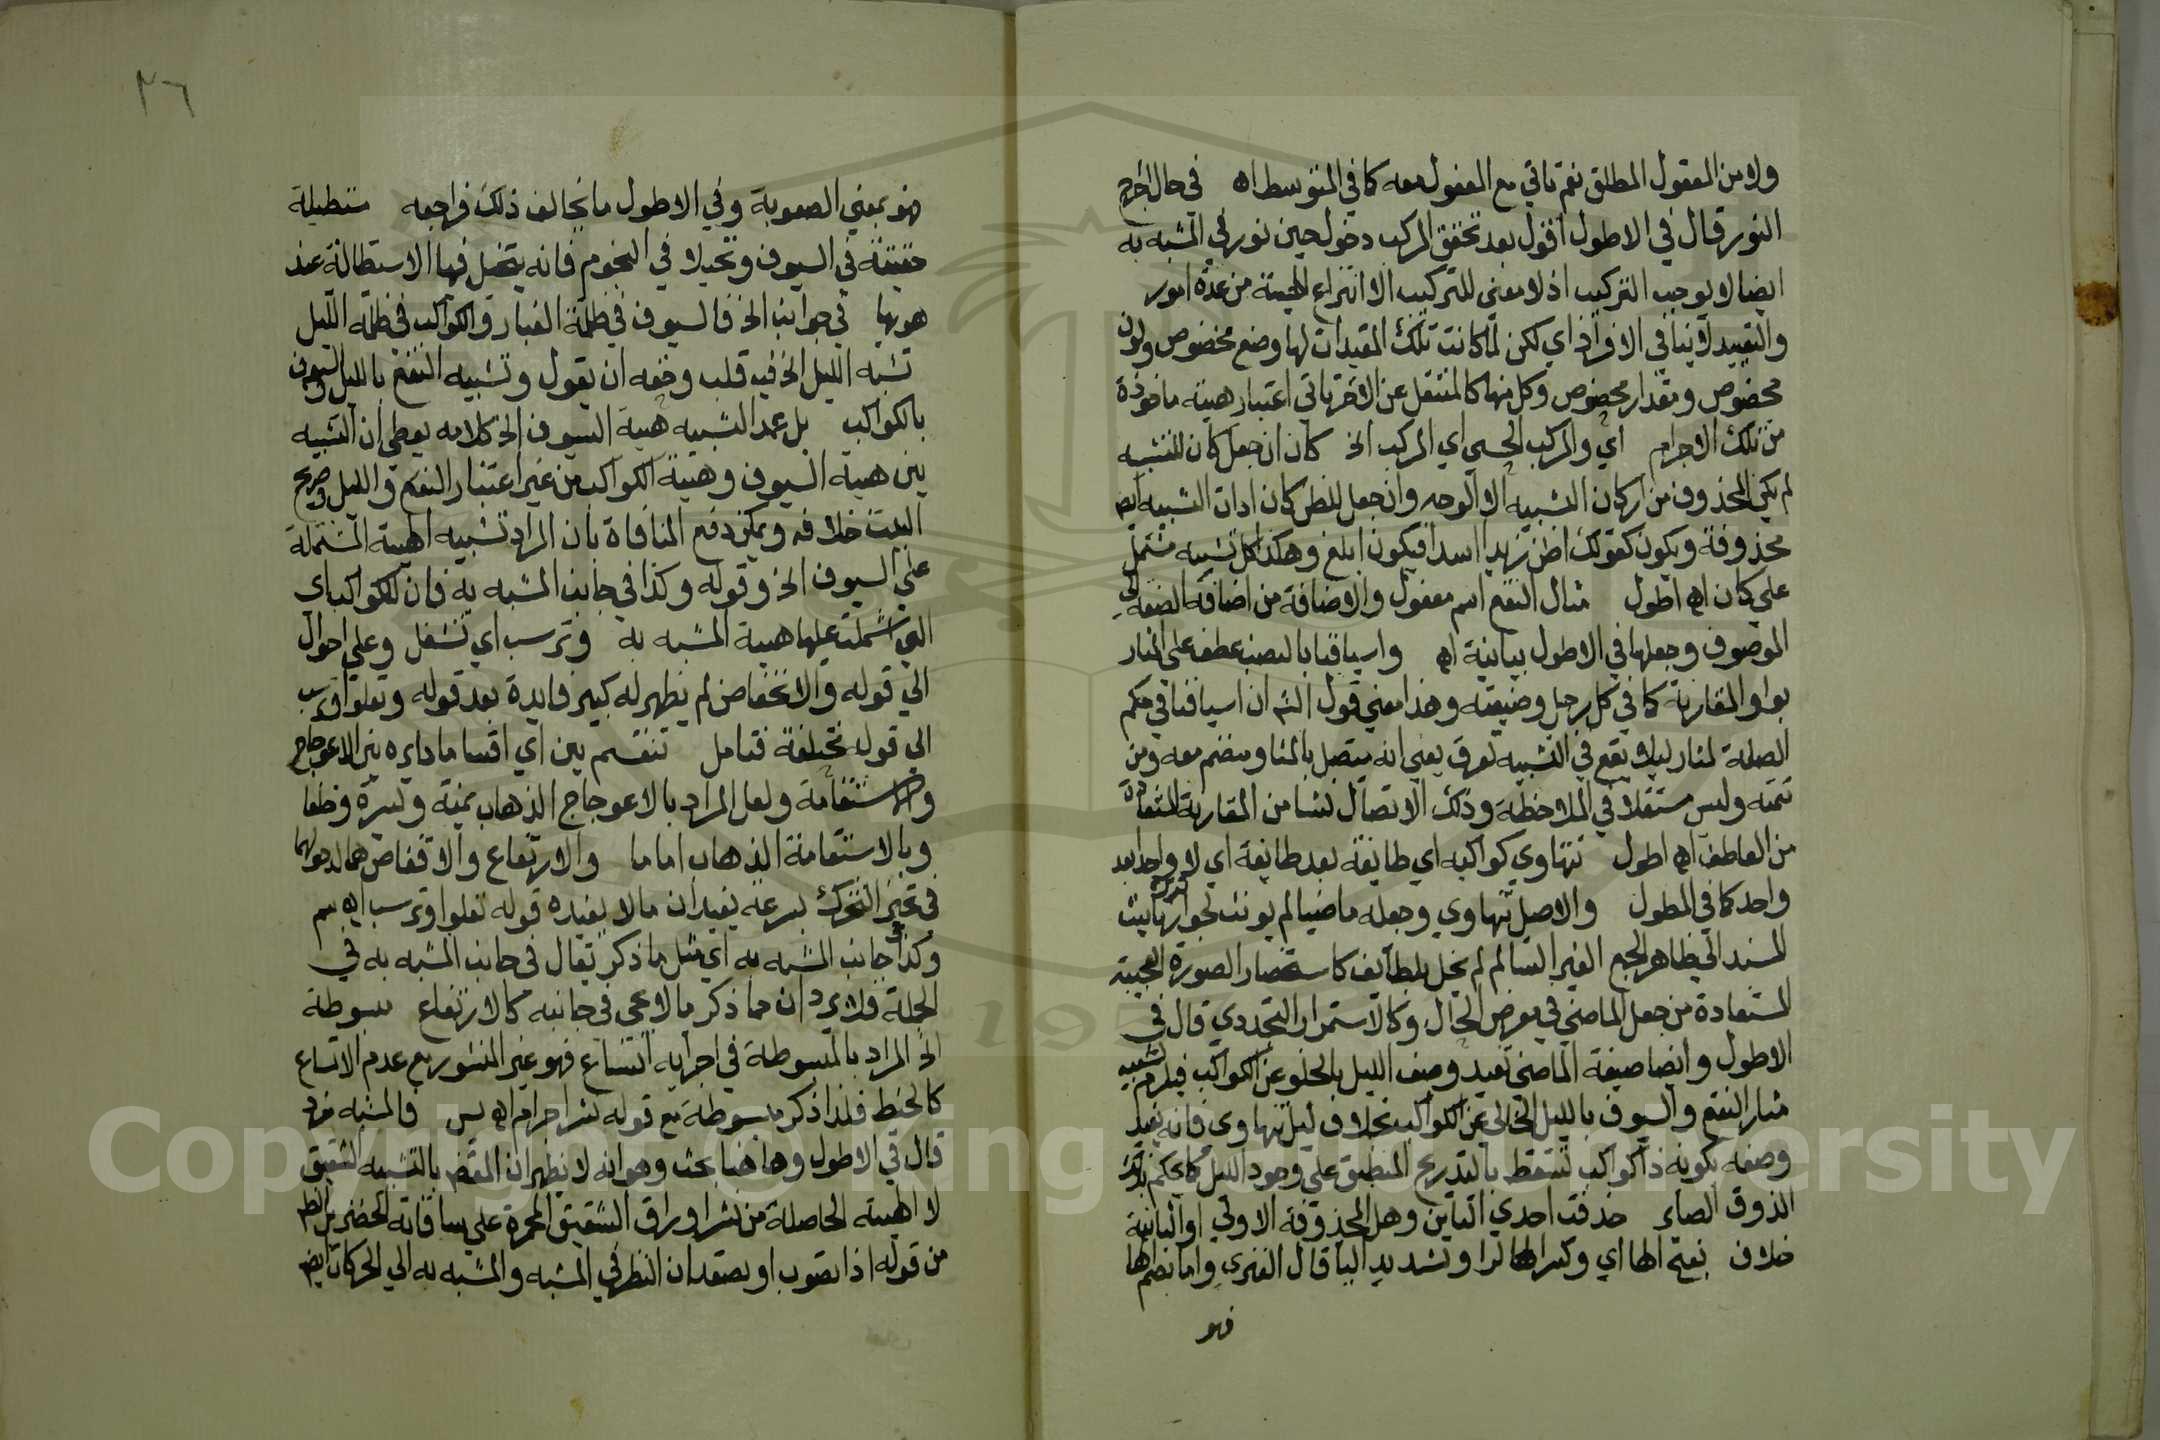 ولا من المفعول المطلق نعم ياتي مع المفعول معه كما في المتوسط اه في حال اخراج
النور قال في الاطول اقول بعد تحقق المركب دخول حين نور في المشبه به
ايضا لا يوجب التركيب اذ لا معنى للتركيب الا انتزاع الهيئة من عدة امور
والتقييد لا ينافي الافراد اي لكن لما كانت تلك المقيدات لها وضع مخصوص ولون
مخصوص ومقدار مخصوص وكل منها كالمنتقل عن الاخر تاتي اعتبار هيئة ماخوذة
من تلك الاجرام اي والمركب الحسي اي المركب الخ كان ان جعل كان للتشبيه
لم يكن المحذوف من اركان التشبيه الا الوجه وان جعل للظن كان ادات التشبيه ايض
محذوفة ويكون كقولك اظن زيدا اسدا فيكون ابلغ وهكذا كل تشبيه مشتمل
على كان اه اطول مثال النقع اسم مفعول والاضافة من اضافة الصفة الى
الموصوف وجعلها في الاطول بيانية اه واسيافنا بالنصب عطف على مثار
بواو المقارنة كما في كل رجل وضيعته وهذا معنى قول الش ان اسيافنا في حكم
الصلة لمثار ليلا يقع في التشبيه تفرق يعني انه متصل بالمثار ومنضم معه ومن
تتمته وليس مستقلا في الملاحظة وذلك الاتصال نشا من المقارنة المستفادة
من العاطف اه اطول تتهاوي كواكبه اي طايفة بعد طايفة اي لا واحدا بعد
واحد كما في المطول والاصل تتهاوي وجعله ماضيا لم يونث لجواز ترك تانيث
المسند الى ظاهر الجمع الغير السالم لم يخل بلطايف كاستحضار الصورة العجيبة
المستفادة من جعل الماضي في معرض الحال وكالاستمرار التجددي قال في
الاطول وايضا صيغة الماضي تفيد وصف الليل بالخلو عن الكواكب فيلزم تشبيه
مثار النقع والسيوف بالليل الخالي عن الكواكب بخلاف ليل تتهاوي فانه يفيد
وصفه بكونه ذا كواكب تسقط بالتدريج المنطبق على وجود الليل كما يحكم بذلك
الذوق الصا حذفت احدي التاين وهل المحذوفة الاولي او الثانية
خلاف بفتح الها اي وكسر الها لرا وتشديد اليا قال الفنري واما بضم ها
فهو
٢٦
فهو بمعني الصعوبة وفي الاطول ما يخالف ذلك فراجعه مستطيلة
حقيقة في السيوف وتخيلا في النجوم فانه يتخيل فيها الاستطالة عند
هويها في جوانب الخ فالسيوف في ظلمة الغبار والكواكب في ظلمة الليل
تشبه الليل الخ فيه قلب وحقه ان يقول وتشبيه النقع بالليل والسيوف
بالكواكب بل عمد التشبيه هيئة السيوف الخ كلامه يعطي ان التشبيه
بين هيئة السيوف وهيئة الكواكب من غير اعتبار النقع والليل وصريح
البيت خلافه ويمكن دفع المنافاة بان المراد تشبيه الهيئة المشتملة
علي السيوف الخ وقوله وكذا في جانب المشبه به فان للكواكب اي
التي اشتملت عليها هيئة المشبه به وترسب اي تتسفل وعلي احوال
الي قوله والانخفاض لم يظهر له كبير فايدة بعد قوله وتعلو وترسب
الي قوله مختلفة فتامل تنقسم بين اي اقساما دايره بين الاعوجاج
والاستقامة ولعل المراد بالاعوجاج الذهاب يمنة ويسرة وخلفا
وبالاستقامة الذهاب اماما والارتفاع والانخفاض هما لدخولهما
في حيز التحرك بسرعة يفيدان ما لا يفيده قوله تعلوا وترسب اه سم
وكذا في جانب المشبه به اي مثل ما ذكر يقال في جانب المشبه به في
الجملة فلا يرد ان مما ذكر ما لا يجي في جانبه كالارتفاع مبسوطة
الخ المراد بالمبسوطة في اجزايه اتساع فهو غير المنشور مع عدم الاتساع
كالخيط فلذا ذكر مبسوطة مع قوله نشر اجرام اه يس فالمشبه مفرد
قال في الاطول وها هنا بحث وهو انه لا يظهر ان المقصد بالتشبيه الشقيق
لا الهيئة الحاصلة من نشر اوراق الشقيق المحمرة علي ساقاته الخضر بل الظ
من قوله اذا تصوب او تصعد ان النظر في المشبه والمشبه به الي الحركات ايض